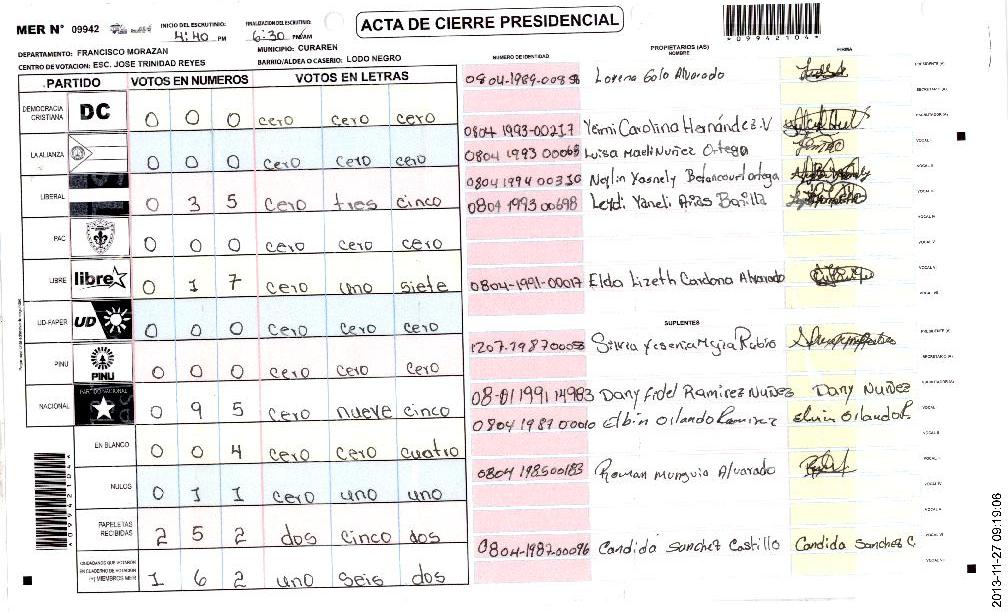 ACTA DE CIERRE PRESIDENCIAL
MER N° 09942
INICIO DEL ESCRUTINIO: 4:40 PM
FINALIZACION DEL ESCRUTINIO: 6:30 PM/AM
*09942104*
DEPARTAMENTO: FRANCISCO MORAZAN
MUNICIPIO: CURAREN
CENTRO DE VOTACION: ESC. JOSE TRINIDAD REYES
BARRIO/ALDEA O CASERIO: LODO NEGRO
PARTIDO VOTOS EN NUMEROS VOTOS EN LETRAS
DEMOCRACIA CRISTIANA DC 0 0 0 cero cero cero
LA ALIANZA 0 0 0 cero cero cero
LIBERAL 0 3 5 cero tres cinco
PAC 0 0 0 cero cero cero
LIBRE libre 0 1 7 cero uno siete
UD-FAPER UD 0 0 0 cero cero cero
PINU PINU 0 0 0 cero cero cero
NACIONAL PARTIDO NACIONAL 0 9 5 cero nueve cinco
EN BLANCO 0 0 4 cero cero cuatro
NULOS 0 1 1 cero uno uno
PAPELETAS RECIBIDAS 2 5 2 dos cinco dos
CIUDADANOS QUE VOTARON EN CUADERNO DE VOTACION (+) MIEMBROS MER 1 6 2 uno seis dos
*09942104*
NUMERO DE IDENTIDAD PROPIETARIOS (AS) NOMBRE FIRMA
Lorena Golo Alvarado PRESIDENTE (A)
SECRETARIO (A)
0804 1993-00217 Yeimi Carolina Hernández.V ESCRUTADOR (A)
Luisa Maeli Nuñez Ortega VOCAL I
0804 1994 00310 Neylin Yosnely Betancourt ortega VOCAL II
0804 1993 00698 Leydi Yaneli Arias Bonilla VOCAL III
VOCAL IV
VOCAL V
0804-1991-00017 Elda Lizeth Cardona Alvarado VOCAL VI
VOCAL VII
SUPLENTES
Silvia Yesenia Mejia Rubio PRESIDENTE (A)
SECRETARIO (A)
08-01 1991 14983 Dany Fidel Ramirez Nuñez Dany Nuñez ESCRUTADOR (A)
0804 1987 00010 Elbin Orlando Ramirez Elvin Orlando R. VOCAL I
VOCAL II
0804 1985 00183 Roman Munguia Alvarado VOCAL III
VOCAL IV
VOCAL V
0804-1987-00096 Candida Sanchez Castillo Candida Sanchez C. VOCAL VI
VOCAL VII
2013-11-27 09:19:06